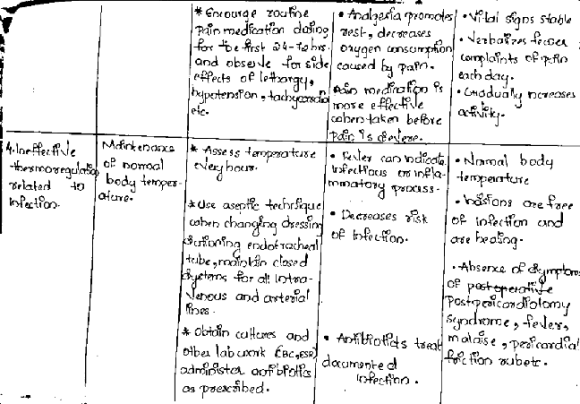 * Encourage routine
pain medication dosing
for the first 24-72 hrs.
and observe for side
effects of lethargy,
hypotension, tachycardia
etc.
• Analgesia promotes
rest, decreases
oxygen consumption
caused by pain.
Pain medication is
more effective
when taken before
pain is severe.
• Vital signs stable
• Verbalizes fewer
complaints of pain
each day.
• Gradually increases
activity.
4. Ineffective
thermoregulation
related to
infection.
Maintenance
of normal
body temper-
ature.
* Assess temperature
every hour.
* Use aseptic technique
when changing dressing
suctioning endotracheal
tube, maintain closed
systems for all intra-
venous and arterial
lines.
* Obtain cultures and
other lab work (CBC, ESR)
administer antibiotics
as prescribed.
• Fever can indicate
infectious or infla-
mmatory process.
• Decreases risk
of infection.
• Antibiotics treat
documented
infection.
• Normal body
temperature
• Incisions are free
of infection and
are healing.
• Absence of symptoms
of postoperative
Postpericardiotomy
syndrome, fever,
malaise, pericardial
friction rubs.